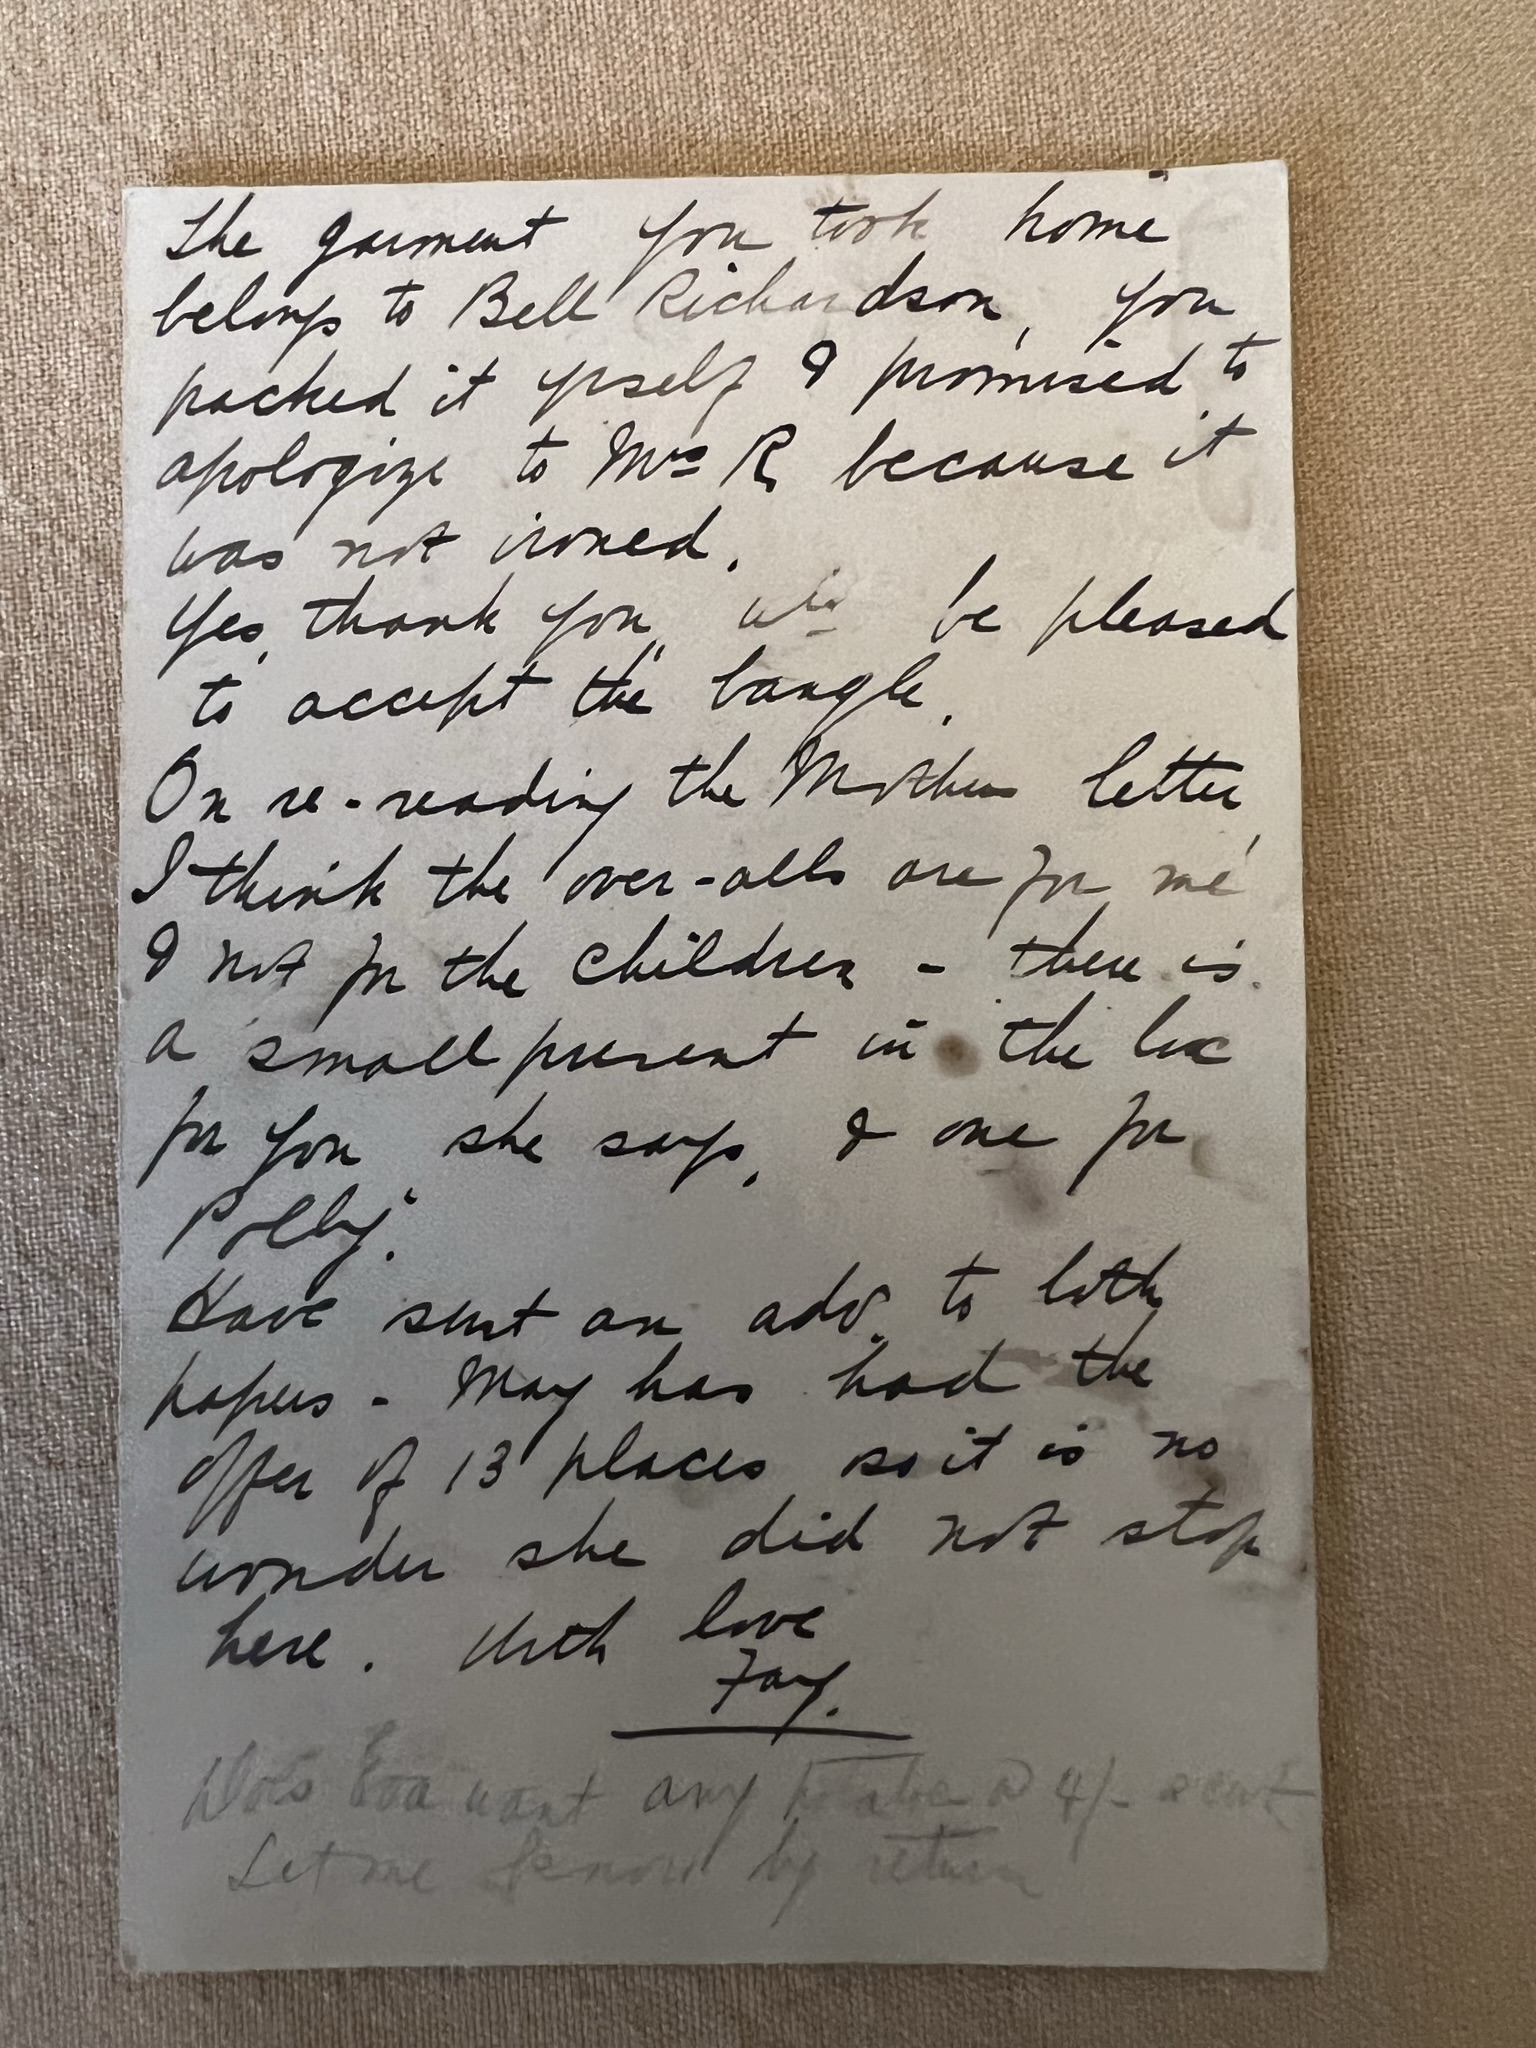 The garment you took home
belongs to Bell Richardson, you
packed it yrself & promised to
apologize to Mrs R, because it
was not ironed.
Yes, thank you, wld be pleased
to accept the bangle.
On re-reading the Mothers letter,
I think the over-alls are for me
& not for the children - there is
a small present in the box
for you she says, & one for
Polly.
Have sent an adv. to both
papers - May has had the
offer of 13 places so it is no
wonder she did not stop
here. With love
Fay.
Does Eva want any @ 4/- a cwt
Let me know by return